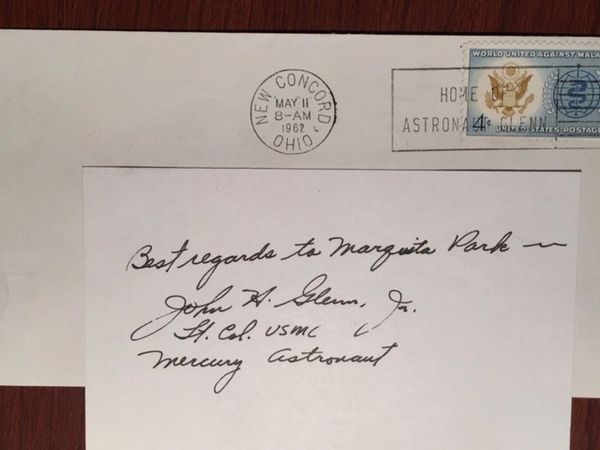 WORLD UNITED AGAINST MALA
NEW CONCORD
MAY 11
8-AM
1962
OHIO
HOME OF
ASTRONAUT GLENN
4c UNITED STATES POSTAGE
Best regards to Marquita Park —
John H. Glenn, Jr.
Lt. Col. USMC
Mercury Astronaut